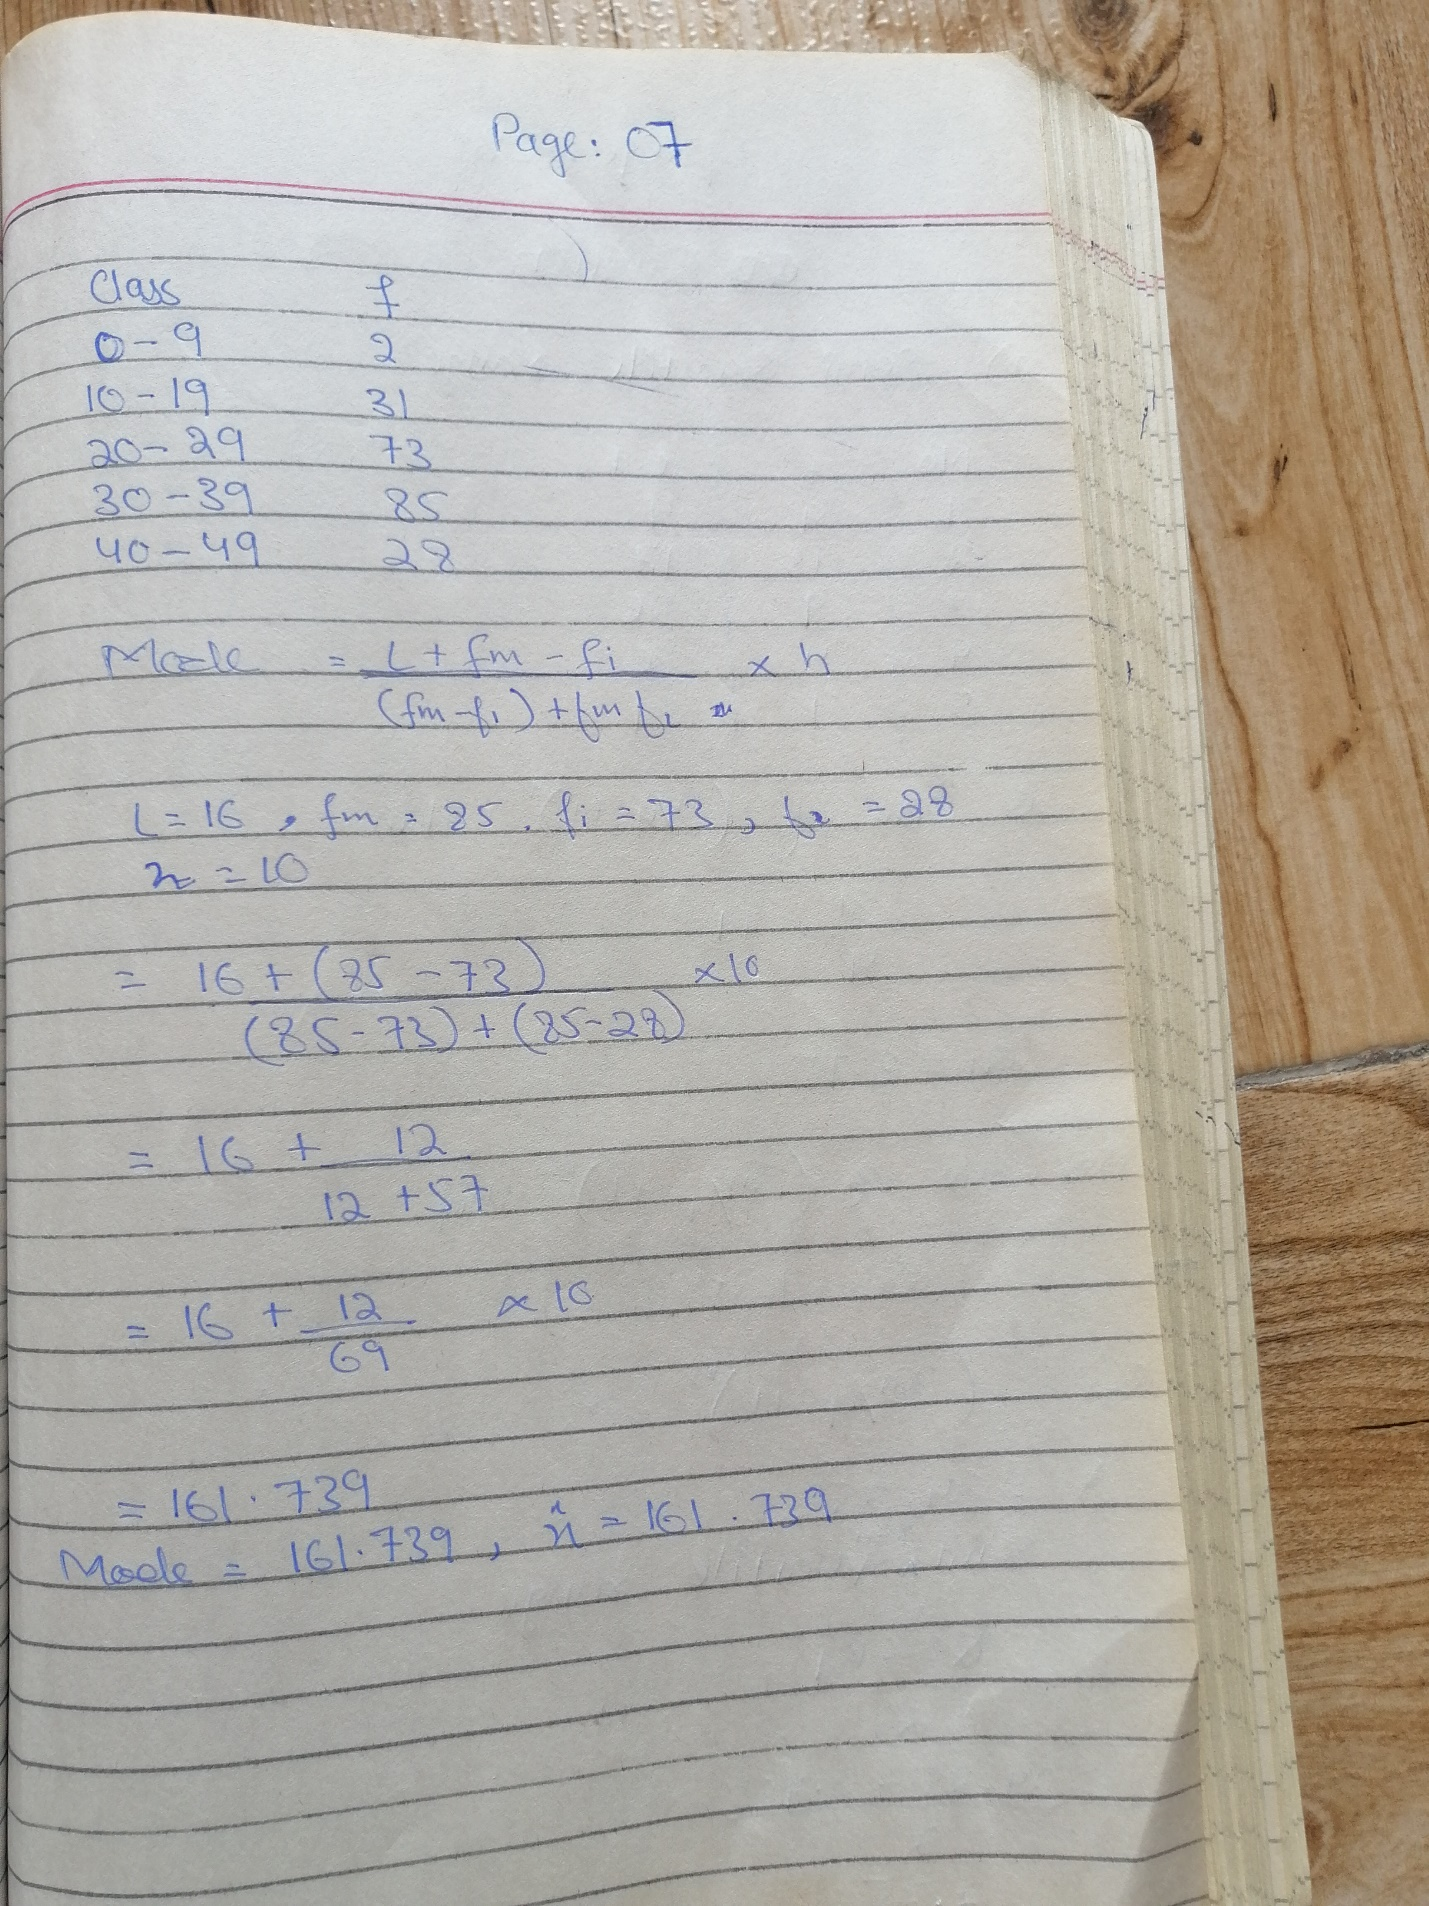 Page: 07
Class f
0-9 2
10-19 31
20-29 73
30-39 85
40-49 28
Mode = L + fm - fi × h
(fm-f1) + fm f2
L=16, fm = 85, fi = 73, f2 = 28
h = 10
= 16 + (85-73) ×10
(85-73) + (85-28)
= 16 + 12
12 + 57
= 16 + 12 × 10
69
= 161.739
Mode = 161.739, x̂ = 161.739